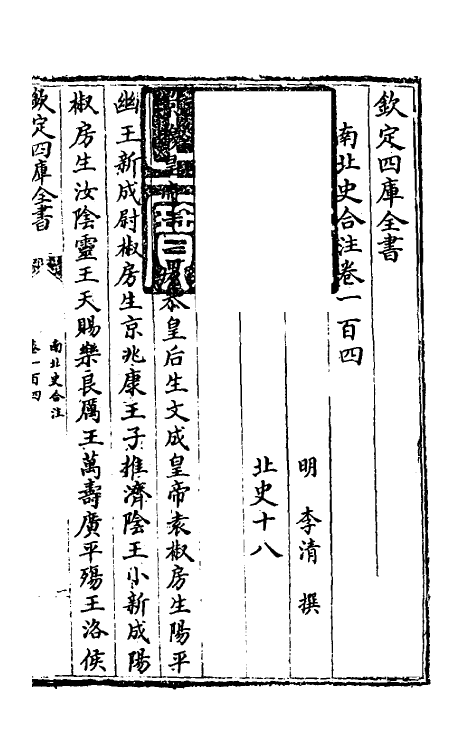 欽定四庫全書
南北史合注卷一百四
明 李清 撰
北史十八
恭皇后生文成皇帝袁椒房生陽平
幽王新成尉椒房生京兆康王子推濟陰王小新成陽
椒房生汝陰靈王天賜樂良厲王萬壽廣平殤王洛侯
欽定四庫全書
南北史合注
卷一百四
一